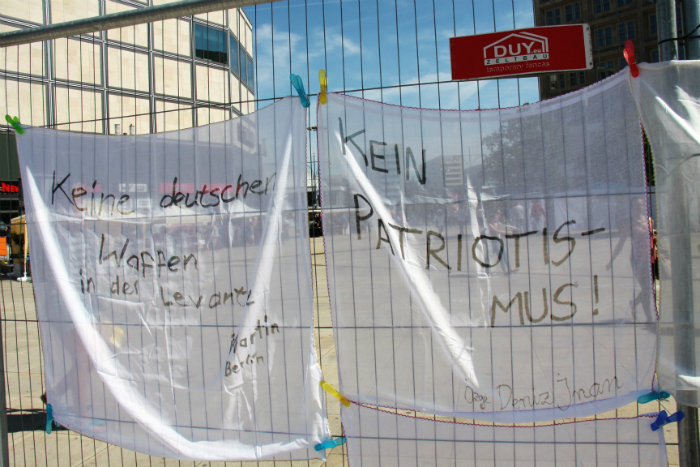 DUY.eu
ZELTBAU
temporary fences
Keine deutschen
Waffen
in der Levante
Martin
Berlin
KEIN
PATRIOTIS-
MUS!
Deniz Inan